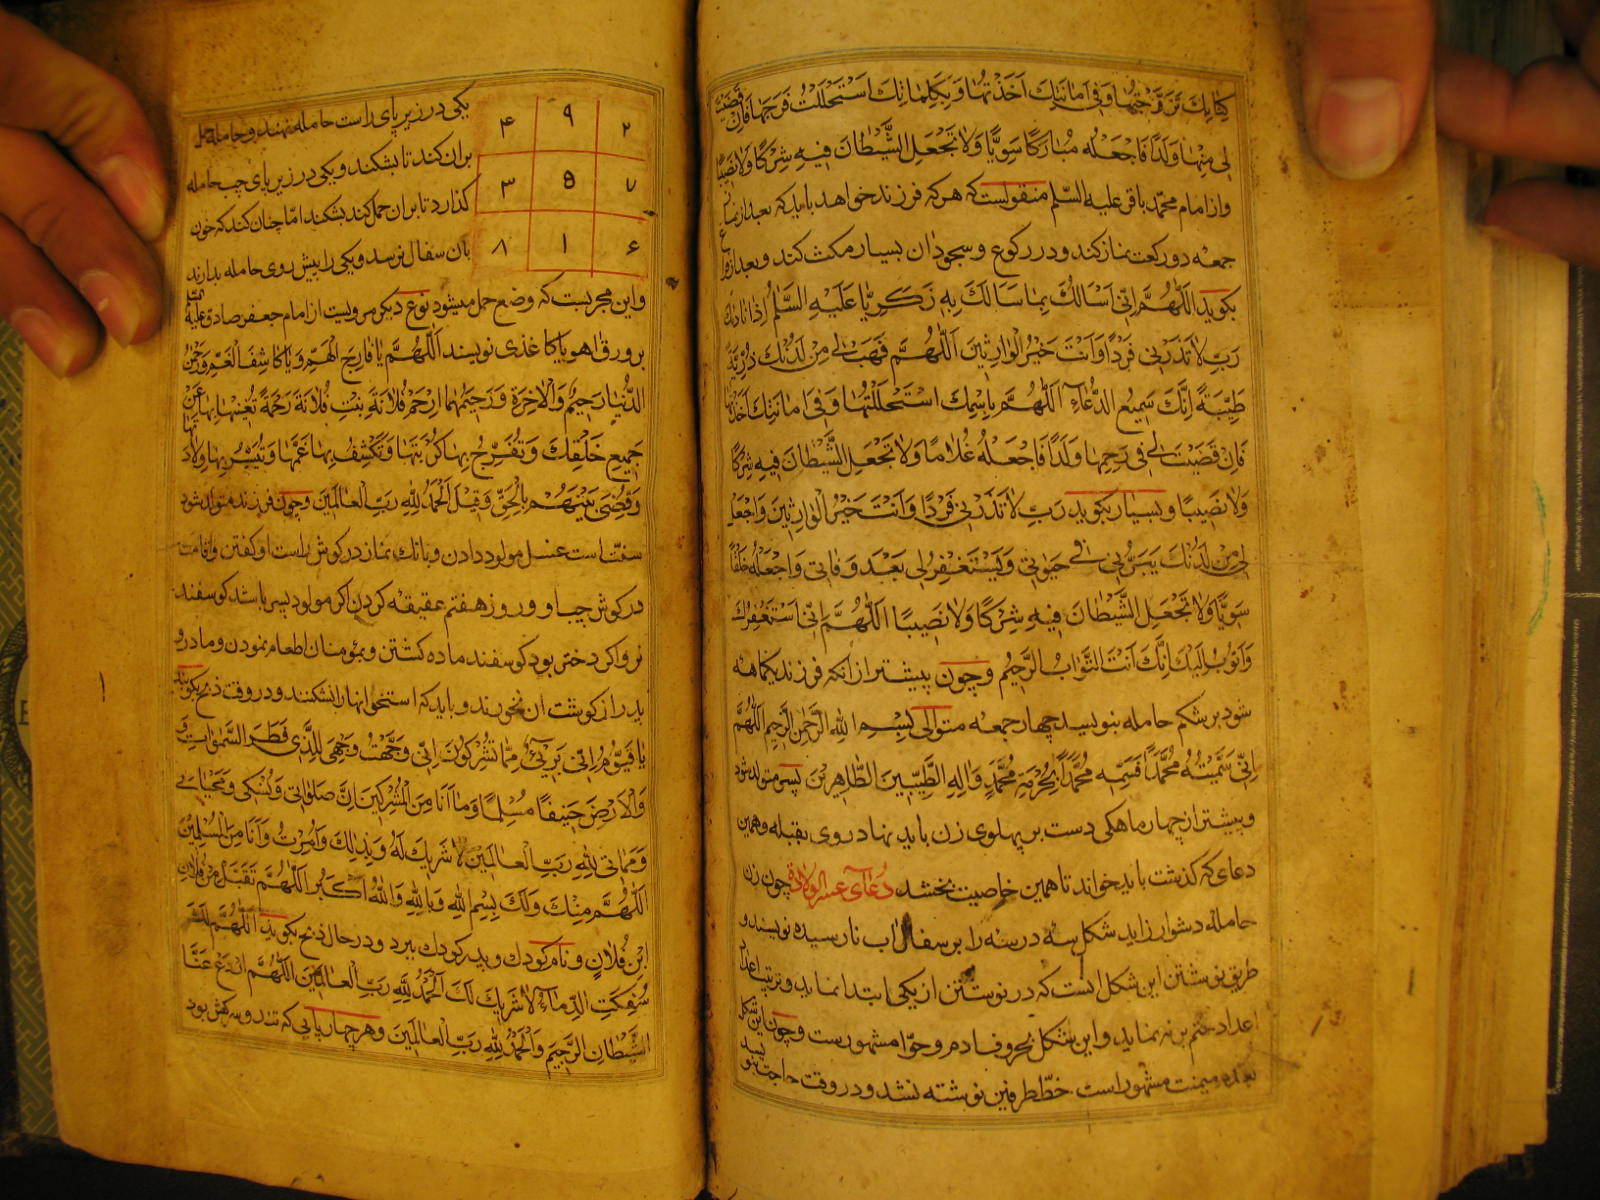 كِتابِكَ تَزَوَّجْتُها وَفى اَمانَتِكَ اَخَذْتُها وَبِكَلِماتِكَ اسْتَحْلَلْتُ فَرْجَها فَاِنْ قَضَيْتَ
لى مِنْها وَلَدًا فَاجْعَلْهُ مُبارَكًا سَوِيًّا وَلا تَجْعَلِ الشَّيْطانَ فيهِ شِرْكًا وَلا نَصيبًا
و از امام محمّد باقر عليه السّلم منقولست كه هر كه فرزند خواهد بايد كه بعد از نماز
جمعه دو ركعت نماز كند و در ركوع و سجود ان بسيار مكث كند و بعد از ان
بكويد اَللّهُمَّ اِنّى اَسْاَلُكَ بِما سَاَلَكَ بِهِ زَكَرِيّا عَلَيْهِ السَّلمُ اِذْ ناداكَ
رَبِّ لا تَذَرْنى فَرْدًا وَاَنْتَ خَيْرُ الْوارِثينَ اَللّهُمَّ فَهَبْ لى مِنْ لَدُنْكَ ذُرِّيَّةً
طَيِّبَةً اِنَّكَ سَميعُ الدُّعآءِ اَللّهُمَّ بِاسْمِكَ اسْتَحْلَلْتُها وَفى اَمانَتِكَ اَخَذْتُها
فَاِنْ قَضَيْتَ لى فى رَحِمِها وَلَدًا فَاجْعَلْهُ غُلامًا وَلا تَجْعَلِ الشَّيْطانَ فيهِ شِرْكًا
وَلا نَصيبًا و بسيار بكويد رَبِّ لا تَذَرْنى فَرْدًا وَاَنْتَ خَيْرُ الْوارِثينَ وَاجْعَلْ
لى مِنْ لَدُنْكَ يَبَرُّ بى فى حَيوتى وَيَسْتَغْفِرُ لى بَعْدَ وَفاتى وَاجْعَلْهُ خَلْقًا
سَوِيًّا وَلا تَجْعَلِ الشَّيْطانَ فيهِ شِرْكًا وَلا نَصيبًا اَللّهُمَّ اِنّى اَسْتَغْفِرُكَ
وَاَتُوبُ اِلَيْكَ اِنَّكَ اَنْتَ التَّوّابُ الرَّحيمُ و چون پيشتر از انكه فرزند يكماهه
شود بر شكم حامله بنويسيد چهار جمعه متوالى بِسْمِ اللهِ الرَّحْمنِ الرَّحيمِ اَللّهُمَّ
اِنّى سَمَّيْتُهُ مُحَمَّدًا فَسَمِّهِ مُحَمَّدًا بِحُرْمَةِ مُحَمَّدٍ وَالِهِ الطَّيِّبينَ الطّاهِرينَ پسر متولد شود
و پيشتر از چهار ماهكى دست بر پهلوى زن بايد نهاد روى بقبله و همين
دعاى كه كذشت بايد خواند تا همين خاصيت بخشد دُعآى عسر الولادة چون زن
حامله دشوار زايد شكل سه در سه را بر سفال اب نارسيده نويسند و
طريق نوشتن اين شكل انست كه در نوشتن از يكى ابتدا نمايد و بترتيب اعداد
اعداد ختم بر نه نمايد و اين شكل بحروف ادم و حوّا مشهورست و چون اين شكل
ميمنت مشهور است خطّ طرفين نوشته نشد و در وقت حاجت بنويسد
۴ ۹ ۲
۳ ۵ ۷
۸ ۱ ۶
يكى در زير پاى راست حامله نهند و حامله حمل
بر ان كند تا بشكند و يكى در زير پاى چپ حامله
كذارد تا بر ان حمل كند بشكند امّا چنان كند كه خون
بان سفال نرسد و يكى را پيش روى حامله بدارند
و اين مجربست كه وضع حمل ميشود نوع ديكر مرويست از امام جعفر صادق عليه السّلم
بر ورق اهو يا كاغذى نويسند اَللّهُمَّ يا فارِجَ الْهَمِّ وَيا كاشِفَ الْغَمِّ وَرَحْمنَ
الدُّنْيا رَحيمُ وَالْاخِرَةِ وَرَحيمُهُما اِرْحَمْ فُلانَةَ بِنْتِ فُلانَةَ رَحْمَةً تُغْنيها بِها عَنْ
جَميعِ خَلْقِكَ وَتُفَرِّجُ بِها كُرْبَتَها وَتَكْشِفُ بِها غَمَّها وَتُيَسِّرُ بِها وِلادَتَها
وَقُضِىَ بَيْنَهُمْ بِالْحَقِّ وَقيلَ الْحَمْدُ لِلّهِ رَبِّ الْعالَمينَ و چون فرزند متولد شود
سنّت است غسل مولود دادن و بانك نماز در كوش راست او كفتن و اقامت
در كوش چپ او و روز هفتم عقيقه كردن اكر مولود پسر باشد كوسفند
نر و اكر دختر بود كوسفند ماده كشتن و بمؤمنان اطعام نمودن و مادر و
پدر از كوشت ان نخورند و بايد كه استخوانها را نشكنند و در وقت ذبح بكويند
يا قَوْمِ اِنّى بَرىءٌ مِمّا تُشْرِكُونَ اِنّى وَجَّهْتُ وَجْهِىَ لِلَّذى فَطَرَ السَّمواتِ وَ
وَالْاَرْضَ حَنيفًا مُسْلِمًا وَما اَنَا مِنَ الْمُشْرِكينَ اِنَّ صَلوتى وَنُسُكى وَمَحْياىَ
وَمَماتى لِلّهِ رَبِّ الْعالَمينَ لا شَريكَ لَهُ وَبِذلِكَ وَاُمِرْتُ وَاَنَا مِنَ الْمُسْلِمينَ
اَللّهُمَّ مِنْكَ وَلَكَ بِسْمِ اللهِ وَبِاللهِ وَاللهُ اَكْبَرُ اَللّهُمَّ تَقَبَّلْ مِنْ فُلانِ
ابْنِ فُلانٍ و نام كودك و پدر كودك ببرد و در حال ذبح بكويد اَللّهُمَّ لَكَ
سُفِكَتِ الدِّمآءُ لا شَريكَ لَكَ اَلْحَمْدُ لِلّهِ رَبِّ الْعالَمينَ اَللّهُمَّ ادْرَءْ عَنَّا
الشَّيْطانَ الرَّجيمَ وَالْحَمْدُ لِلّهِ رَبِّ الْعالَمينَ و هر چهارپايى كه تند و سركش بود